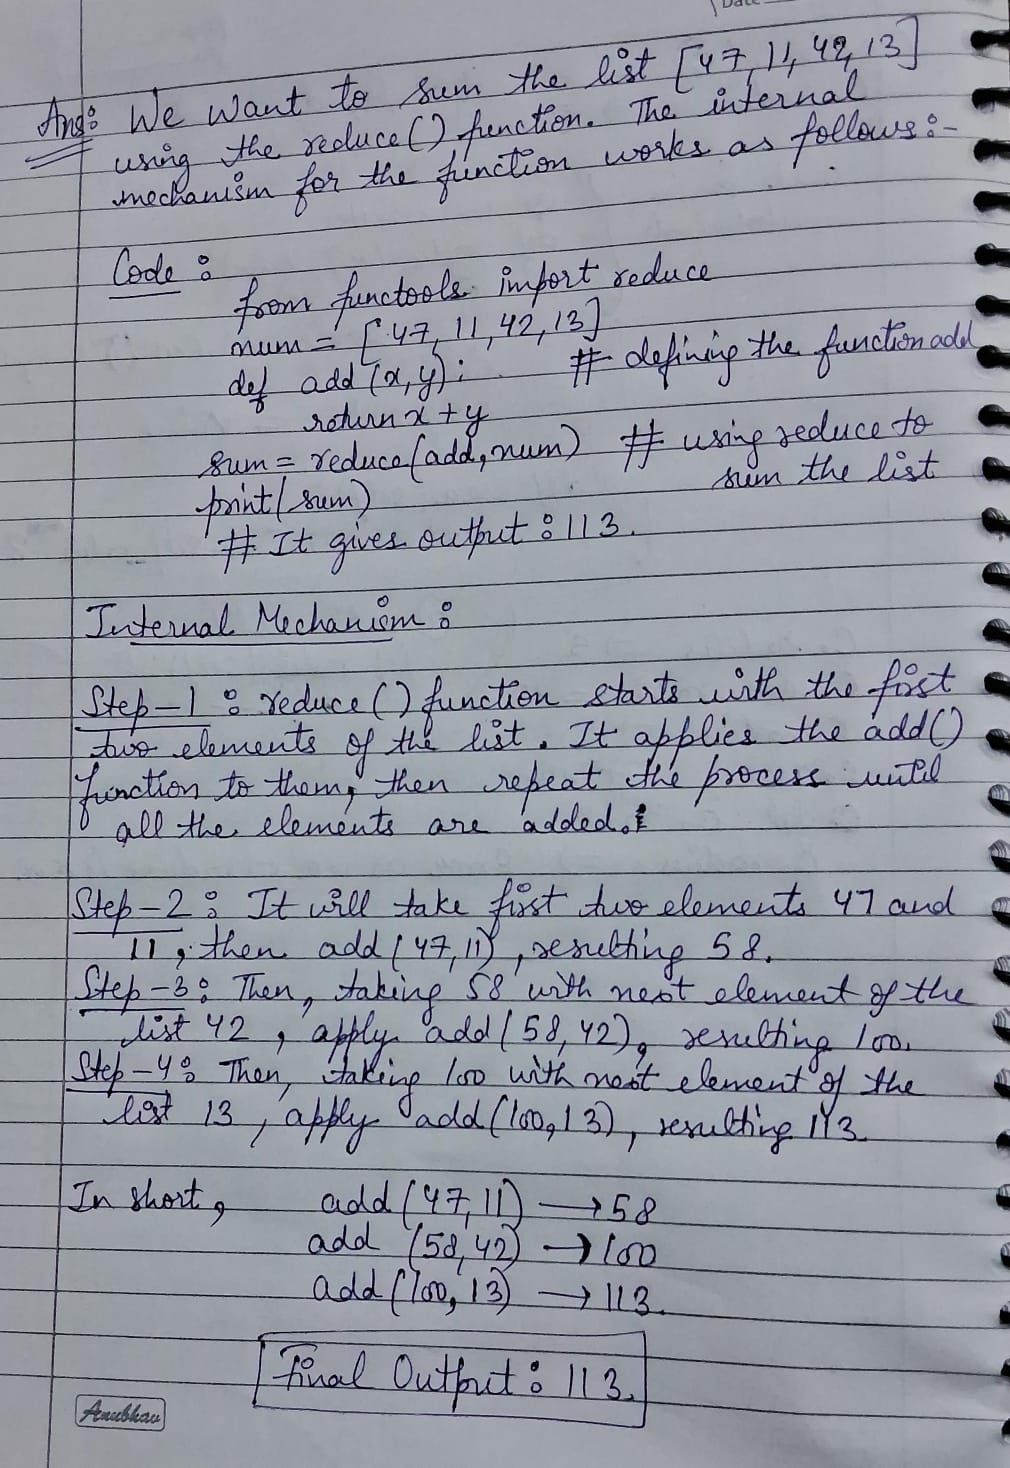 Date
Ans: We want to sum the list [47, 11, 42, 13]
using the reduce() function. The internal
mechanism for the function works as follows:-
Code :
from functools import reduce
num = [47, 11, 42, 13]
def add (x, y): # defining the function add
return x + y
sum = reduce(add, num) # using reduce to
sum the list
print(sum)
# It gives output : 113.
Internal Mechanism :
Step-1 : reduce() function starts with the first
two elements of the list. It applies the add()
function to them, then repeat the process until
all the elements are added.
Step-2 : It will take first two elements 47 and
11, then add (47, 11), resulting 58.
Step-3: Then, taking 58 with next element of the
list 42, apply add (58, 42), resulting 100.
Step-4: Then, taking 100 with next element of the
list 13, apply add (100, 13), resulting 113.
In short, add (47, 11) → 58
add (58, 42) → 100
add (100, 13) → 113.
Final Output : 113.
Anubhav